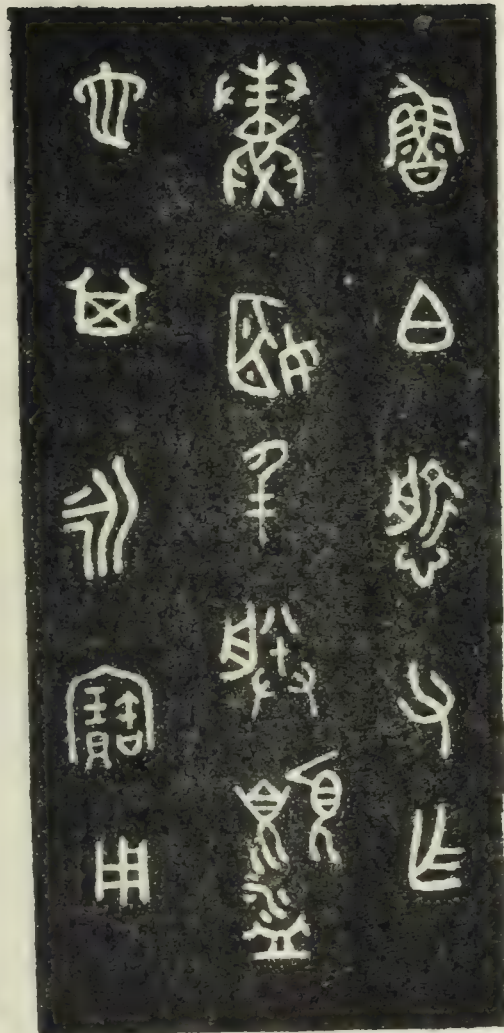 魯白愈父乍
鼄姬仁朕沬
也其永寶用